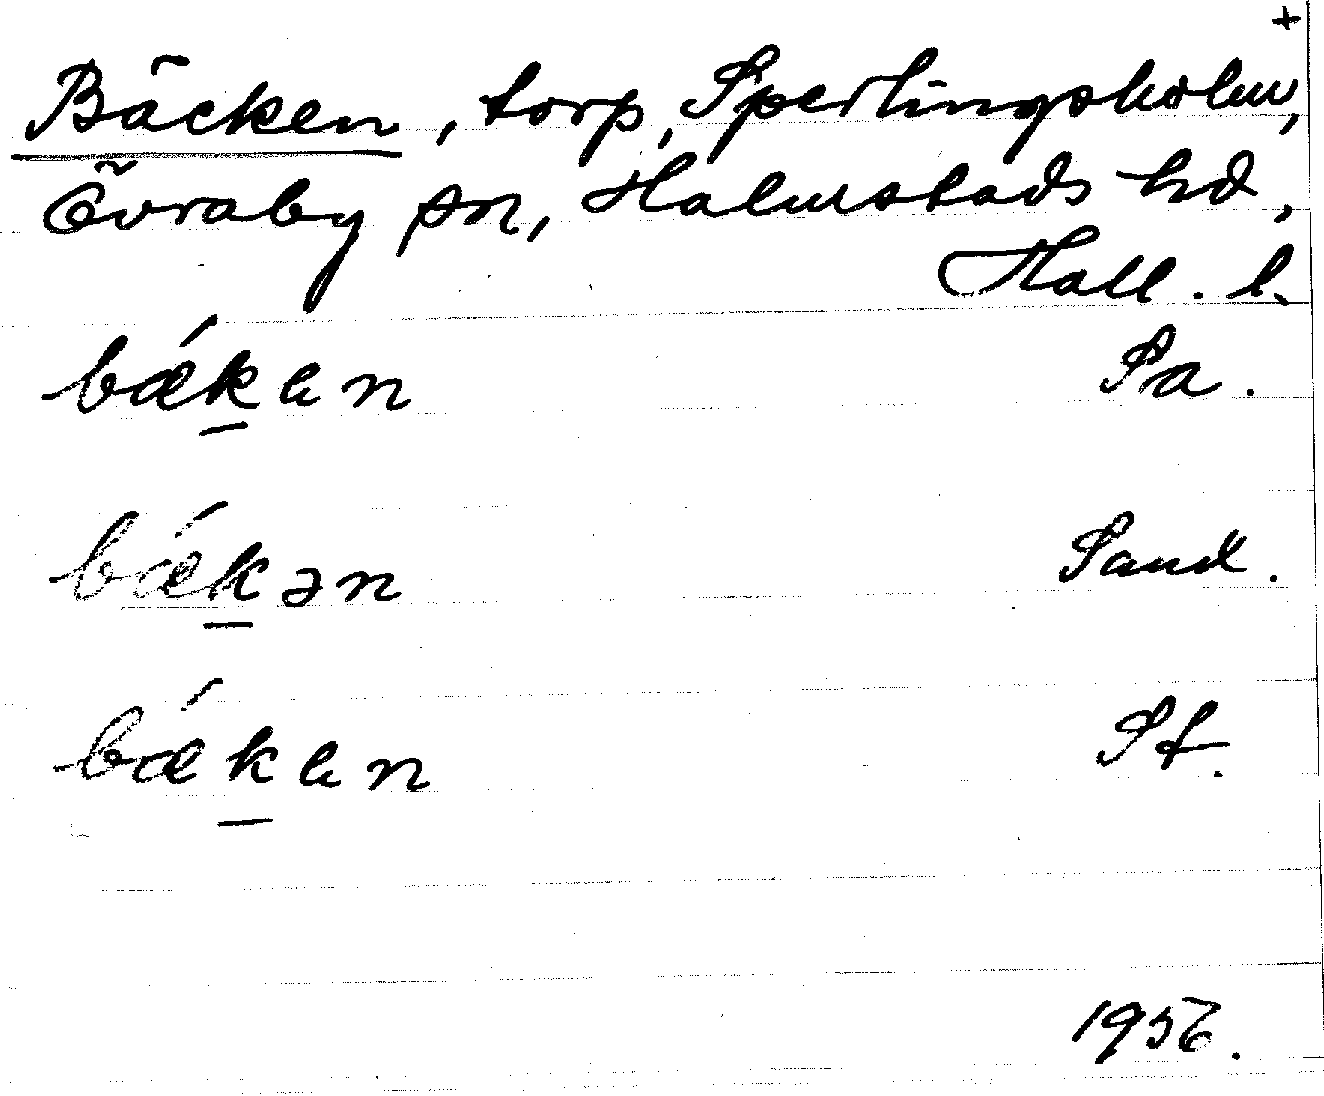 +
Bäcken, torp, Sperlingsholm,
Övraby sn, Halmstads hd,
Hall. l.
bǽkɐn Sa.
bǽkən Sand.
bǽkɐn St.
1956.